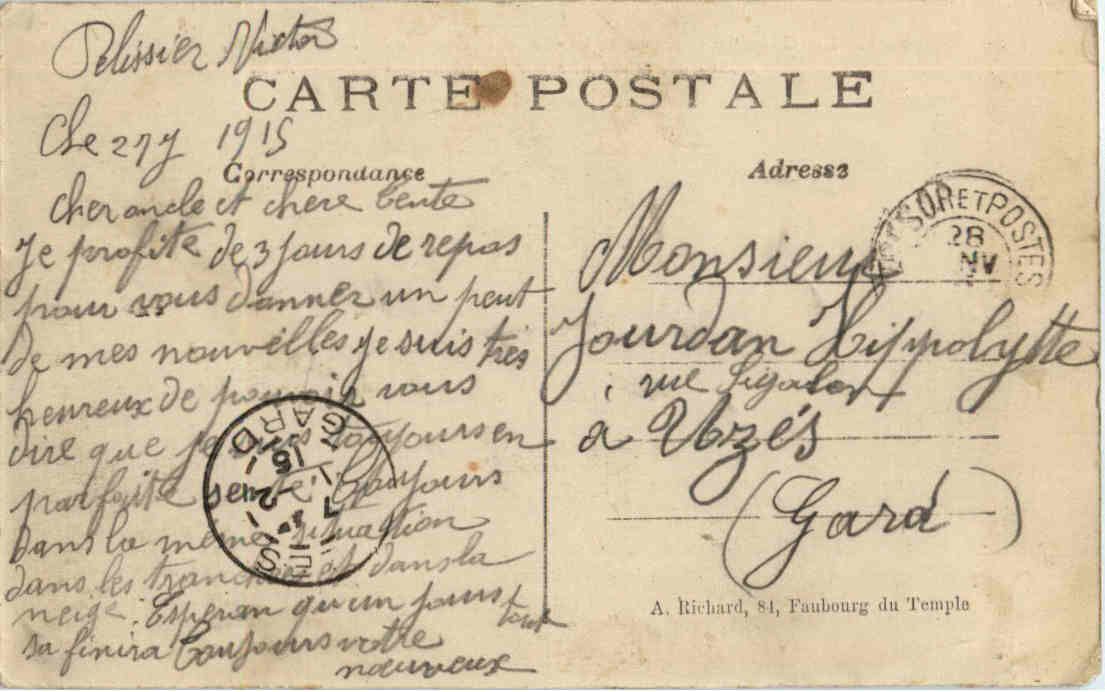 Pelissier Victor
CARTE POSTALE
Le 27 9 1915
Correspondance
Cher oncle et chere tente
Je profite de 3 jours de repos
pour vous donner un peut
de mes nouvelles je suis tres
heureux de pouvoir vous
dire que je suis toujours en
parfaite sente. Toujours
dans la meme situation
dans les tranchees et dans la
neige. Esperan qu'un jours tout
sa finira Toujours votre
nouveux
Adresse
TRESOR ET POSTES
28
NV
Monsieur
Jourdan Hippolytte
rue Sigalon
à Uzés
(Gard)
A. Richard, 84, Faubourg du Temple
GARD
15